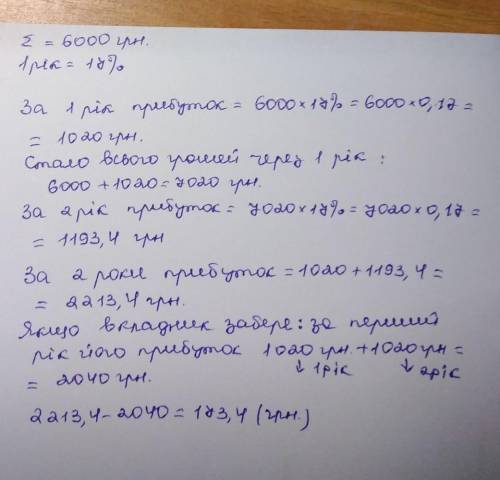 Σ = 6000 грн.
1 рік = 17%
За 1 рік прибуток = 6000 × 17% = 6000 × 0,17 =
= 1020 грн.
Стало всього грошей через 1 рік :
6000 + 1020 = 7020 грн.
За 2 рік прибуток = 7020 × 17% = 7020 × 0,17 =
= 1193,4 грн
За 2 роки прибуток = 1020 + 1193,4 =
= 2213,4 грн.
Якщо вкладник забере: за перший
рік його прибуток 1020 грн. + 1020 грн =
= 2040 грн. ↓ 1 рік ↓ 2 рік
2213,4 - 2040 = 173,4 (грн.)